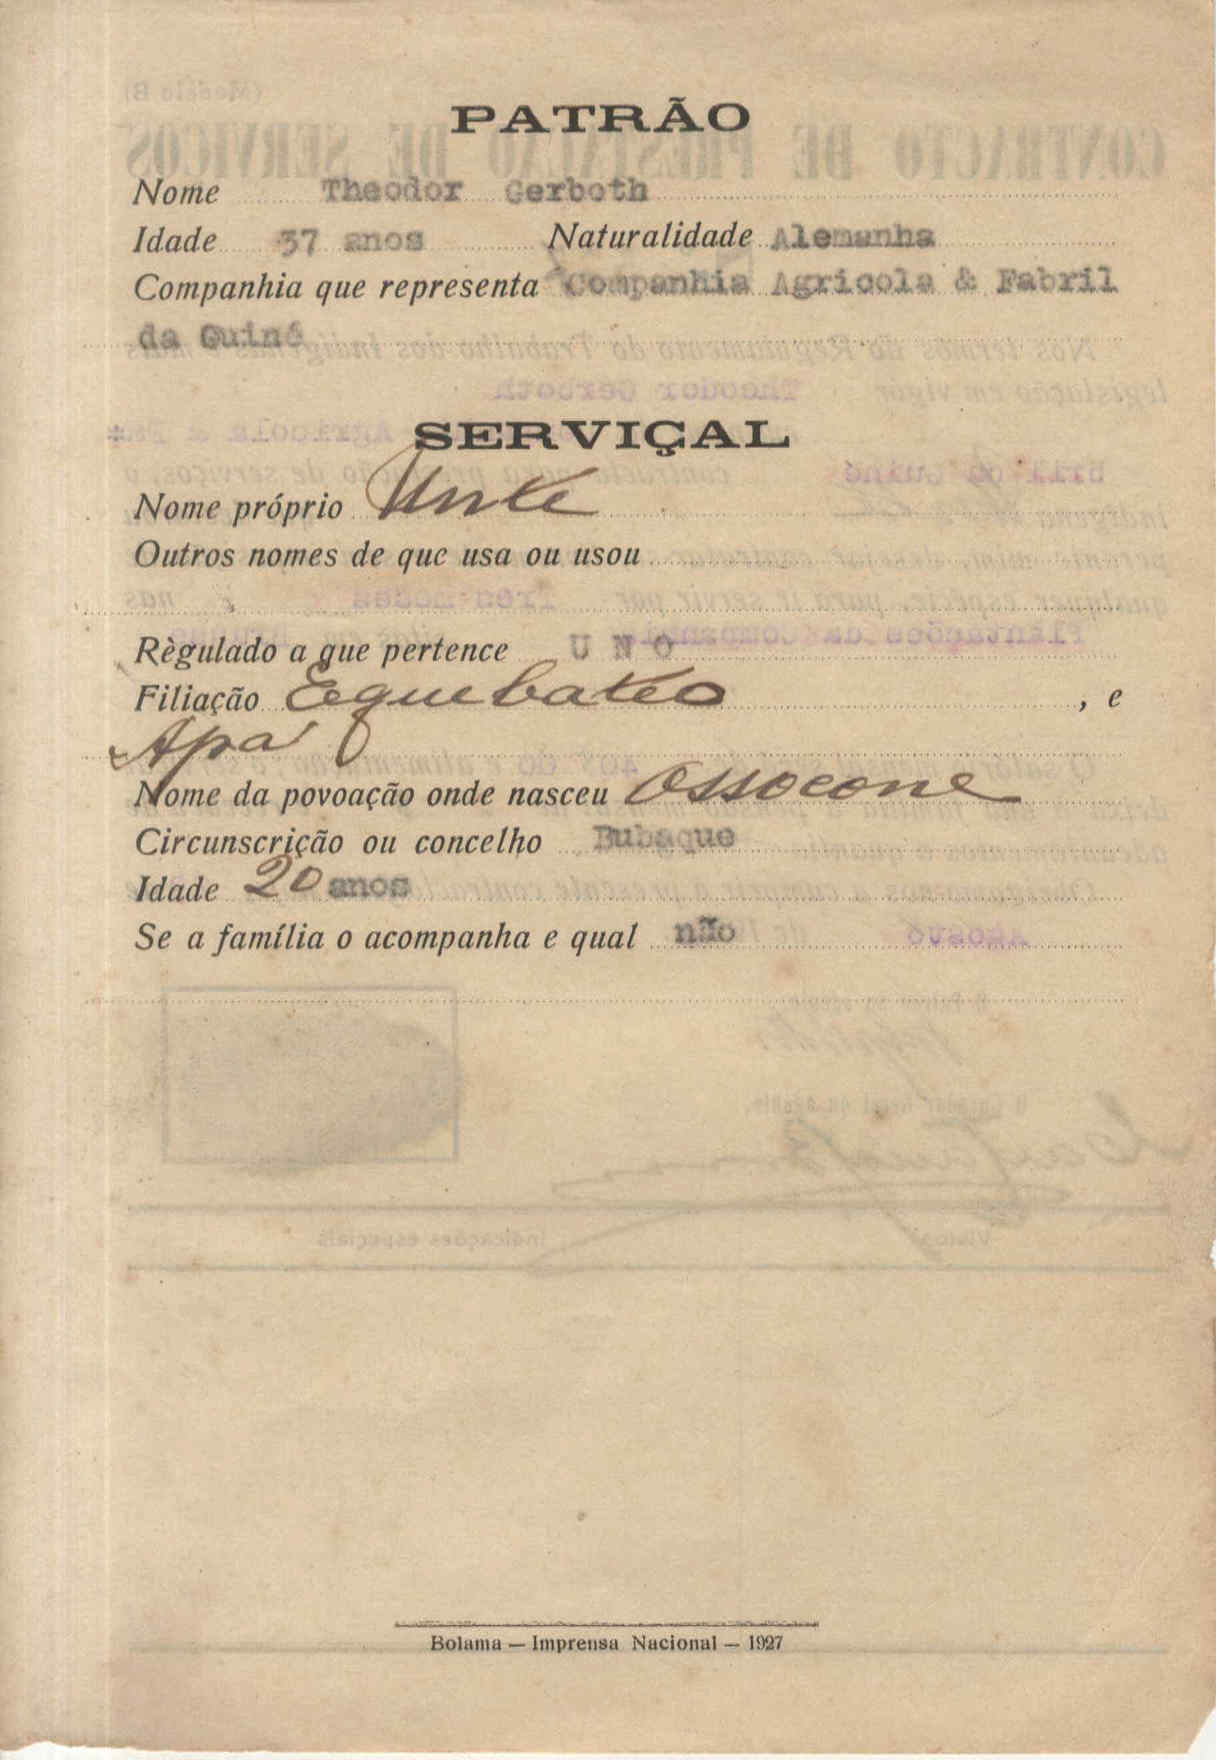 PATRÃO
Nome Theodor Gerboth
Idade 37 anos Naturalidade Alemanha
Companhia que representa Companhia Agricola & Fabril
da Guiné
SERVIÇAL
Nome próprio Unte
Outros nomes de que usa ou usou
Règulado a que pertence U N O
Filiação Eguebateo , e
Apa
Nome da povoação onde nasceu Ossocone
Circunscrição ou concelho Bubaque
Idade 20 anos
Se a família o acompanha e qual não
Bolama — Imprensa Nacional — 1927